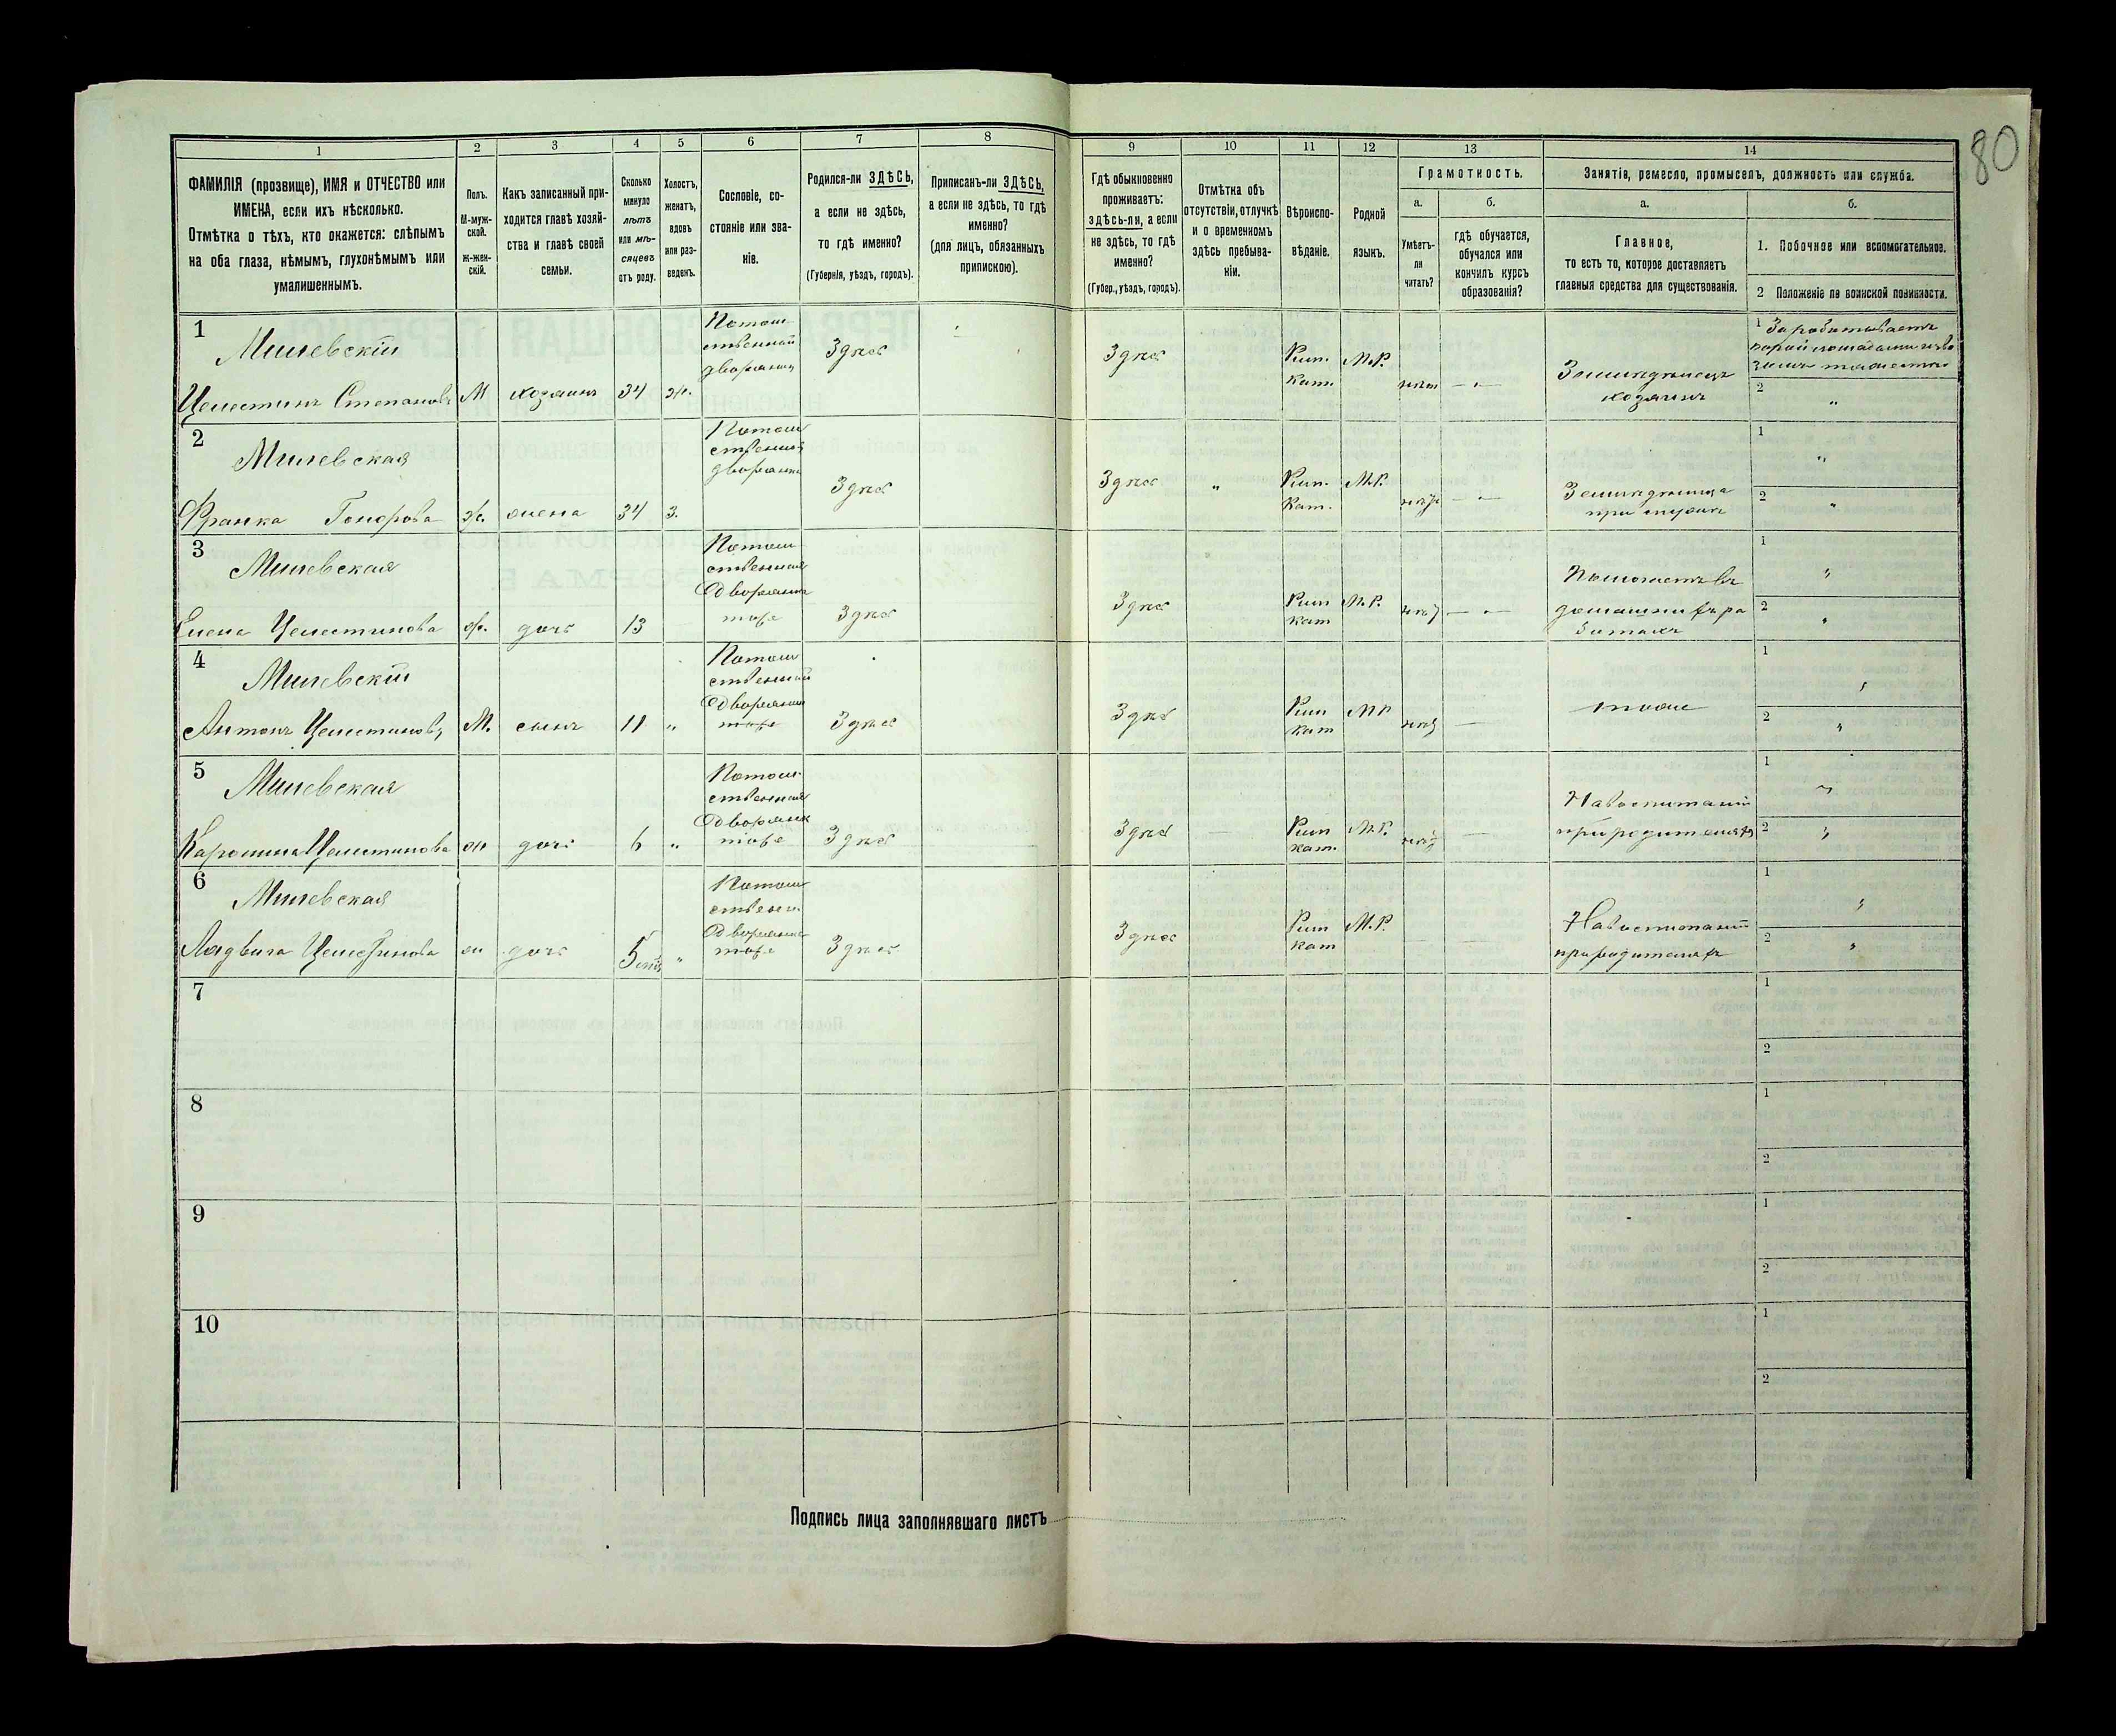 80
1 2 3 4 5 6 7 8 9 10 11 12 13 14
ФАМИЛІЯ (прозвище), ИМЯ и ОТЧЕСТВО или
ИМЕНА, если ихъ нѣсколько.
Отмѣтка о тѣхъ, кто окажется: слѣпымъ
на оба глаза, нѣмымъ, глухонѣмымъ или
умалишеннымъ.
Полъ.
М-муж-
ской.
Ж-жен-
скій.
Какъ записанный при-
ходится главѣ хозяй-
ства и главѣ своей
семьи.
Сколько
минуло
лѣтъ
или мѣ-
сяцевъ
отъ роду.
Холостъ,
женатъ,
вдовъ
или раз-
веденъ.
Сословіе, со-
стояніе или зва-
ніе.
Родился-ли ЗДѢСЬ,
а если не здѣсь,
то гдѣ именно?
(Губернія, уѣздъ, городъ).
Приписанъ-ли ЗДѢСЬ,
а если не здѣсь, то гдѣ
именно?
(для лицъ, обязанныхъ
припискою).
Гдѣ обыкновенно
проживаетъ:
здѣсь-ли, а если
не здѣсь, то гдѣ
именно?
(Губер., уѣздъ, городъ).
Отмѣтка объ
отсутствіи, отлучкѣ
и о временномъ
здѣсь пребыва-
ніи.
Вѣроиспо-
вѣданіе.
Родной
языкъ.
Грамотность.
а.
Умѣетъ-
ли
читать?
б.
гдѣ обучается,
обучался или
кончилъ курсъ
образованія?
Занятіе, ремесло, промыселъ, должность или служба.
а.
Главное,
то есть то, которое доставляетъ
главныя средства для существованія.
б.
1. Побочное или вспомогательное.
2 Положеніе по воинской повинности.
1
Милевскій
Целестинъ Степановъ
М
хозяинъ
34
ж.
Потом-
ственный
дворянинъ
Здѣсь
Здѣсь
Рим.
Кат.
М.Р.
нѣтъ
Земледѣлецъ
хозяинъ
1 Зарабатываетъ
2
2
Милевская
Франка Гонорова
ж.
жена
34
з.
Потом
ственная
дворянка
Здѣсь
Здѣсь
Рим.
Кат.
М.Р.
Земледѣлица
при мужѣ
1
2
3
Милевская
Елена Целестинова
ж.
дочь
13
Потом
ственная
Дворянка
тоже
Здѣсь
Здѣсь
Рим
Кат
М.Р.
Помогаетъ въ
домашнихъ ра
ботахъ
1
2
4
Милевскій
Антонъ Целестиновъ
М.
сынъ
11
Потом
ственный
Дворянин
тоже
Здѣсь
Здѣсь
Рим
Кат
М.Р.
тоже
1
2
5
Милевская
Каролина Целестинова
ж
дочь
6
Потом
ственная
Дворянк
тоже
Здѣсь
Здѣсь
Рим
Кат.
М.Р.
На воспитаніи
при родителяхъ
1
2
6
Милевская
Людвига Целестинова
ж
дочь
5
Потом
ствен.
Дворянка
тоже
Здѣсь
Здѣсь
Рим
Кат
М.Р.
На воспитаніи
при родителяхъ
1
2
7
1
2
8
1
2
9
1
2
10
1
2
Подпись лица заполнявшаго листъ